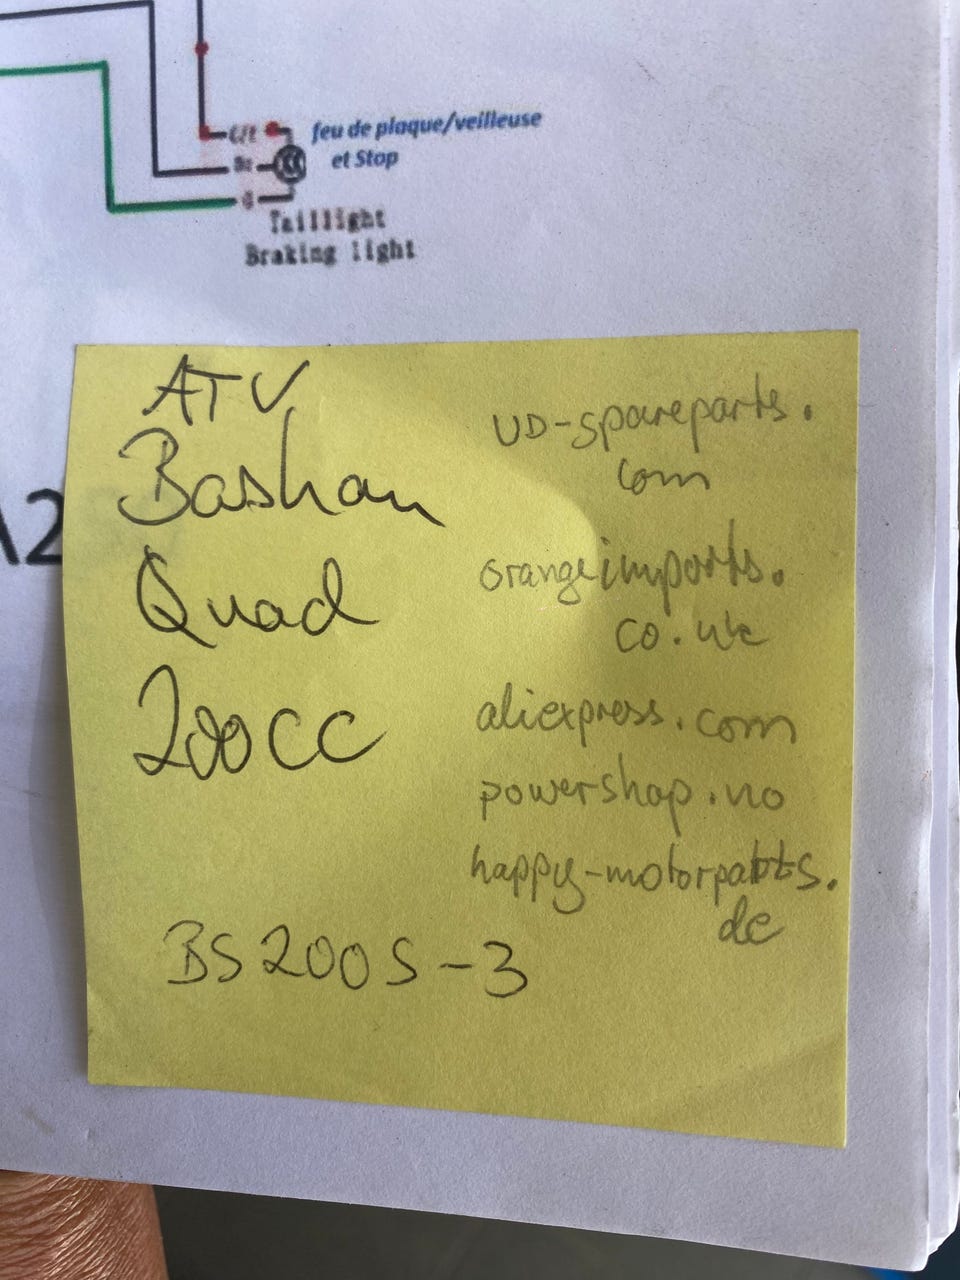 feu de plaque/veilleuse
et Stop
Taillight
Braking light
ATV
Bashan
Quad
200CC
BS200S-3
UD-spareparts.
com
orangeimports.
co.uk
aliexpress.com
powershop.no
happy-motorparts.
de